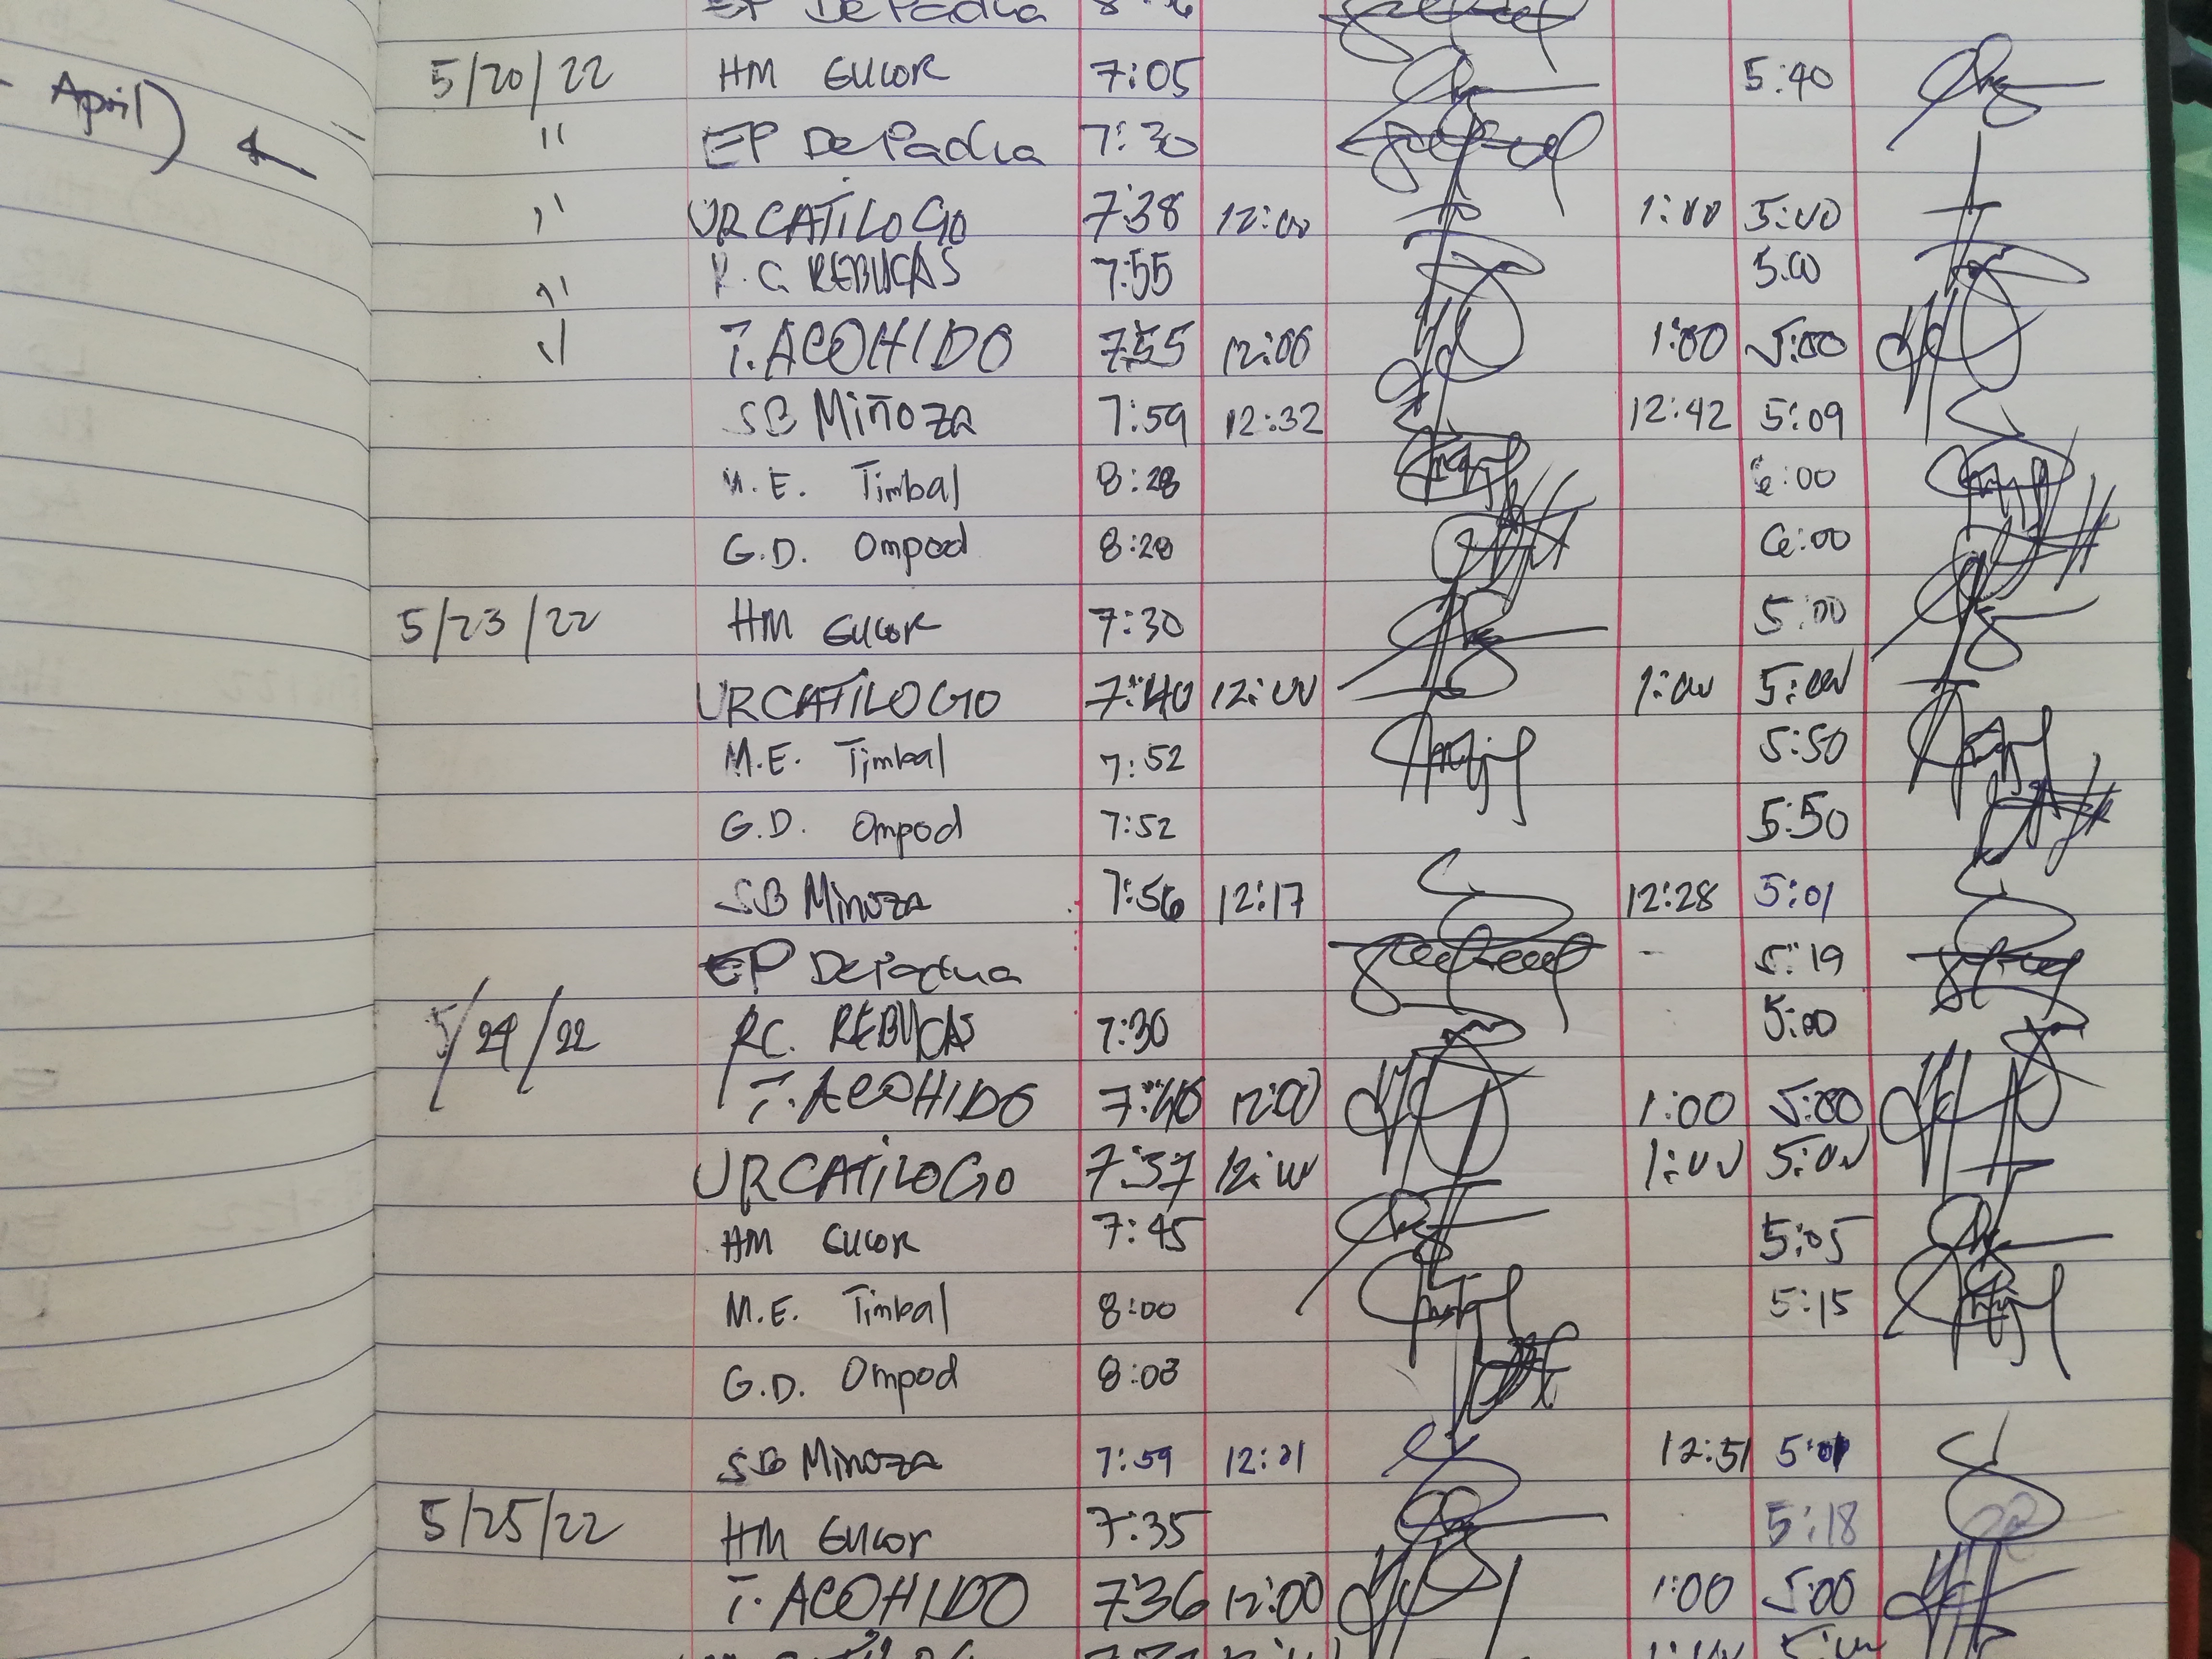 April)
EP De Padua
5/20/22 HM Gucor 7:05 5:40
" EP De Padua 7:30
" URCATILOGO 7:38 12:00 1:00 5:00
" R.C. REBUCAS 7:55 5:00
" T. ACOHIDO 7:55 12:00 1:00 5:00
SB Miñoza 7:59 12:32 12:42 5:09
M.E. Timbal 8:28 6:00
G.D. Ompod 8:28 6:00
5/23/22 HM Gucor 7:30 5:00
URCATILOGO 7:40 12:00 1:00 5:00
M.E. Timbal 7:52 5:50
G.D. Ompod 7:52 5:50
SB Minoza 7:56 12:17 12:28 5:01
EP De Padua - 5:19
5/24/22 RC. REBUCAS 7:30 5:00
T. ACOHIDO 7:40 12:00 1:00 5:00
URCATILOGO 7:37 12:00 1:00 5:00
HM Gucor 7:45 5:05
M.E. Timbal 8:00 5:15
G.D. Ompod 8:03
SB Minoza 7:59 12:21 12:51 5:01
5/25/22 HM Gucor 7:35 5:18
T. ACOHIDO 7:36 12:00 1:00 5:00